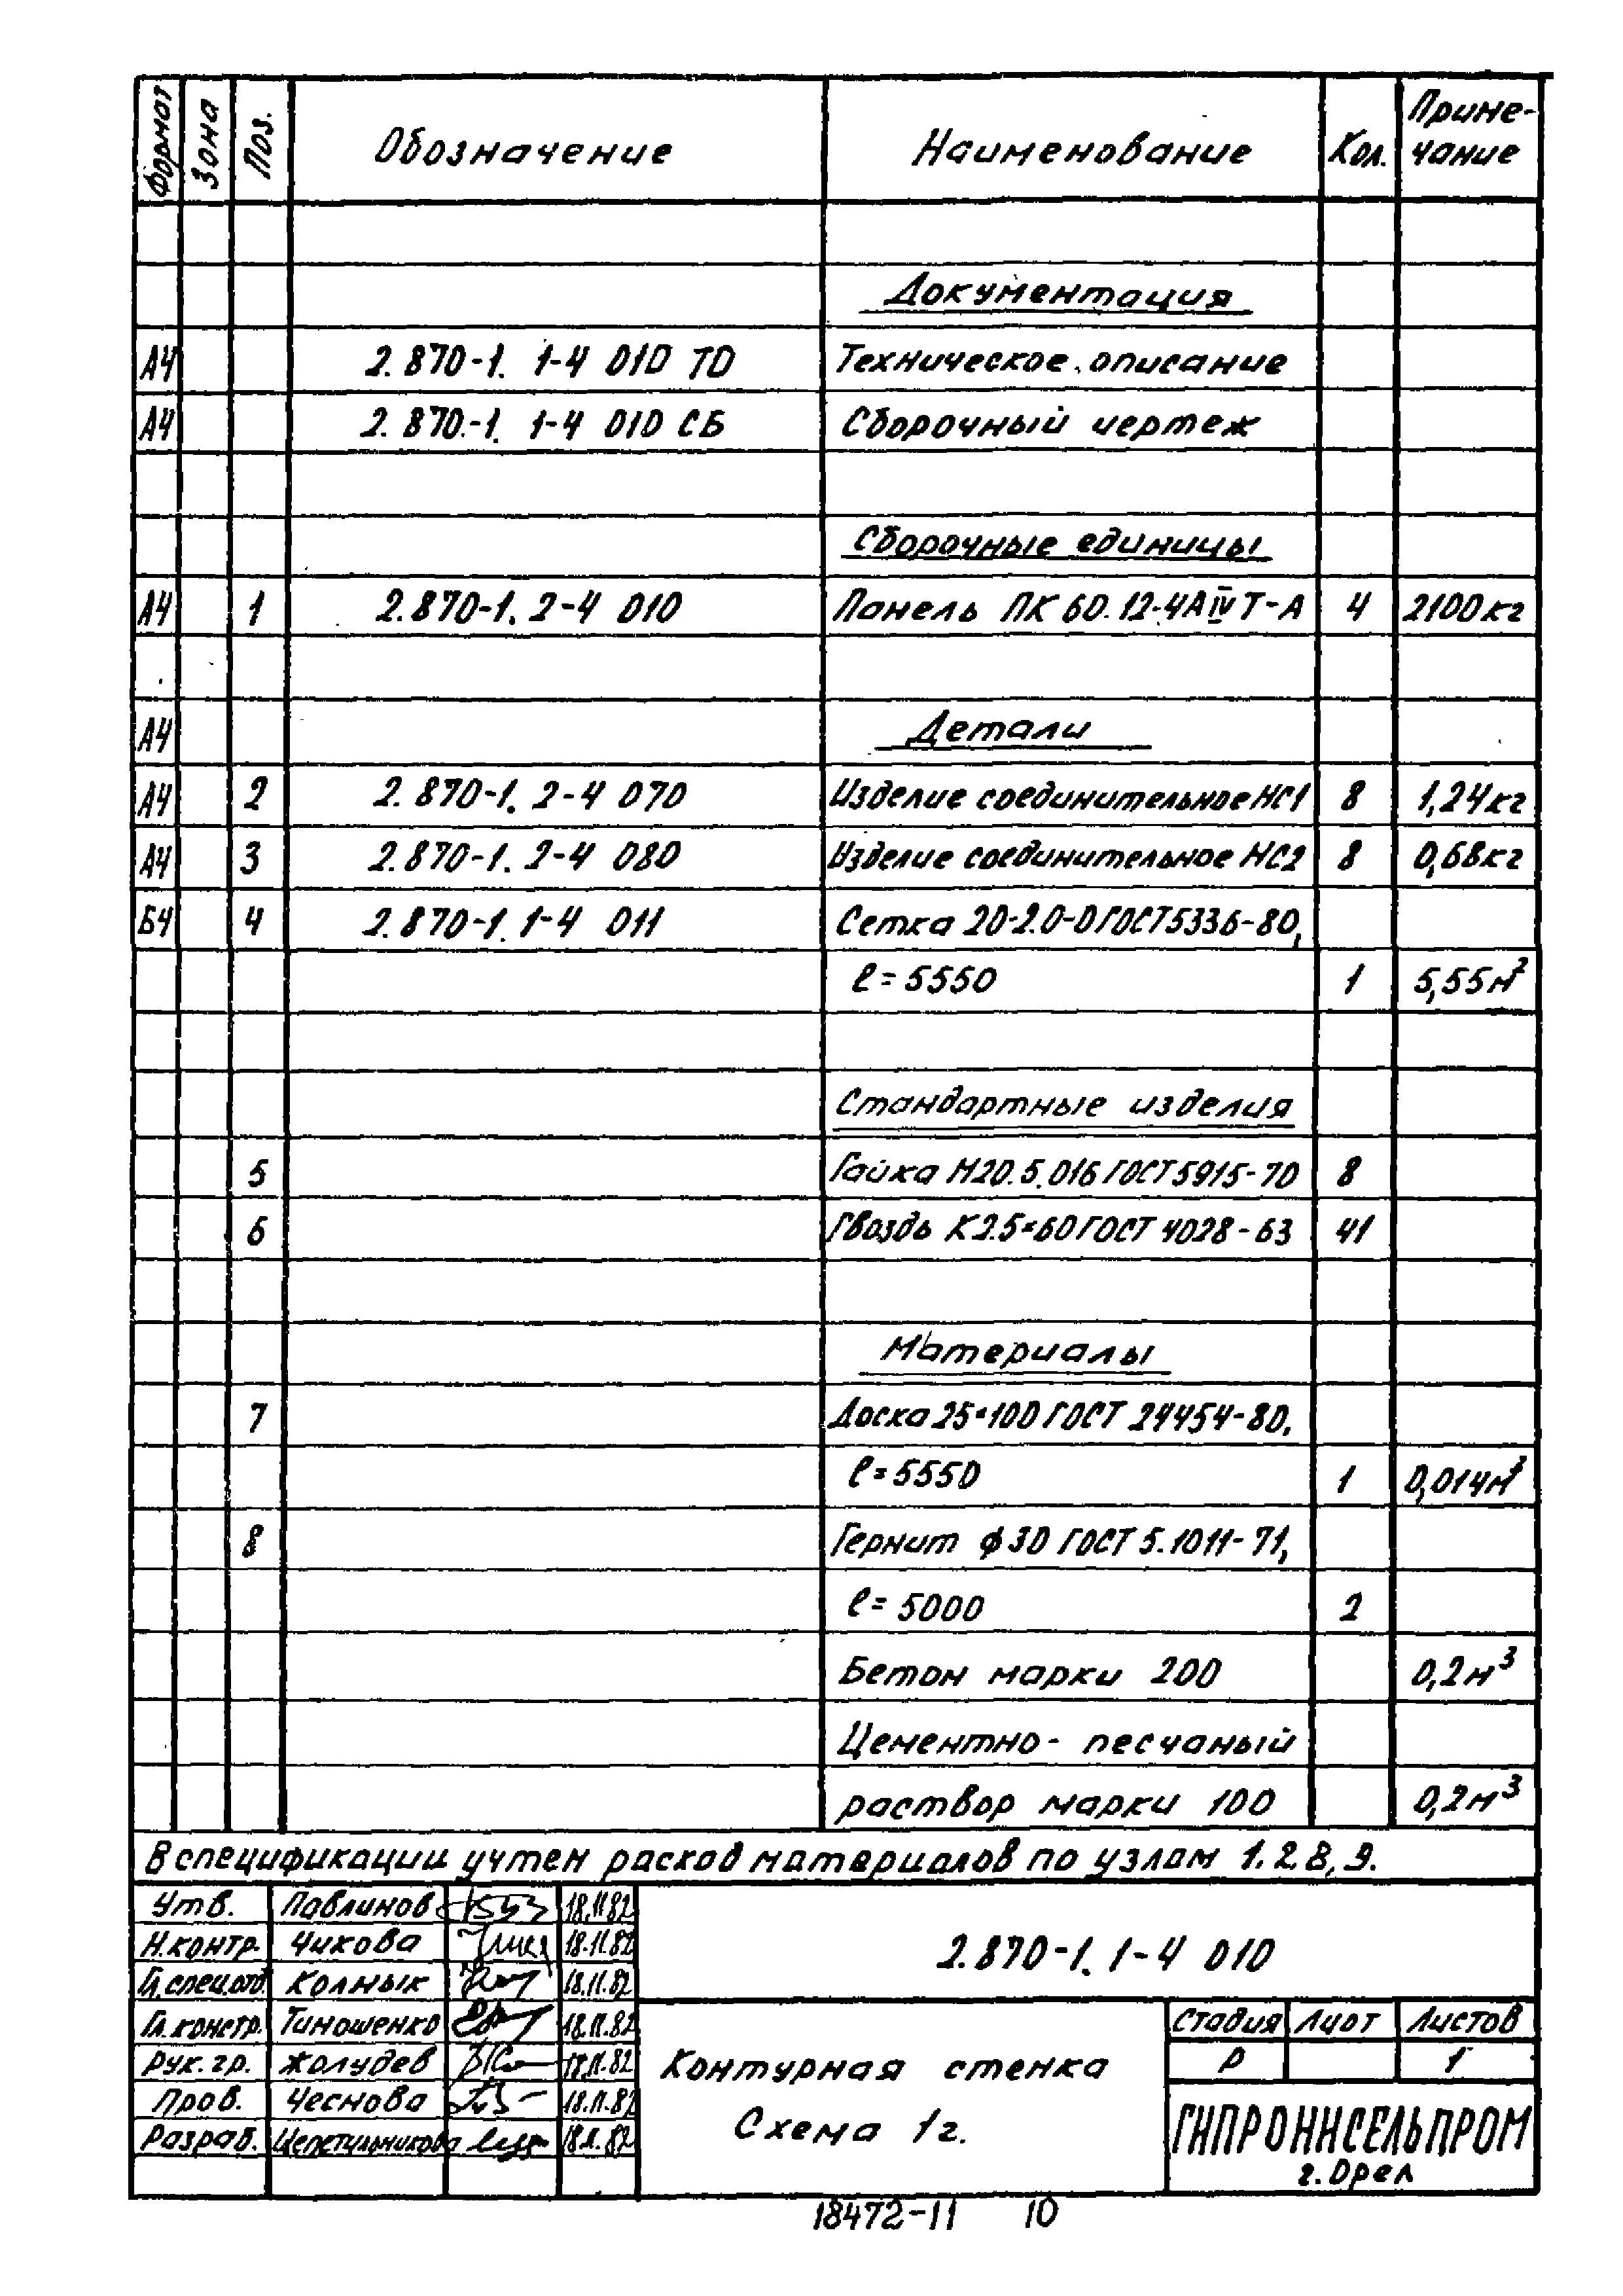 Формат Зона Поз. Обозначение Наименование Кол. Приме-
чание
Документация
А4 2.870-1. 1-4 010 ТО Техническое описание
А4 2.870-1. 1-4 010 СБ Сборочный чертеж
Сборочные единицы
А4 1 2.870-1. 2-4 010 Панель ПК 60.12-4АIVТ-А 4 2100кг
А4 Детали
А4 2 2.870-1. 2-4 070 Изделие соединительное НС1 8 1,24кг
А4 3 2.870-1. 2-4 080 Изделие соединительное НС2 8 0,68кг
БЧ 4 2.870-1. 1-4 011 Сетка 20-2.0-0 ГОСТ 5336-80,
ℓ=5550 1 5,55м²
Стандартные изделия
5 Гайка М20.5.016 ГОСТ 5915-70 8
6 Гвоздь К2.5×60 ГОСТ 4028-63 41
Материалы
7 Доска 25×100 ГОСТ 24454-80,
ℓ=5550 1 0,014м³
8 Гернит ф30 ГОСТ 5.1011-71,
ℓ=5000 2
Бетон марки 200 0,2м³
Цементно-песчаный
раствор марки 100 0,2м³
В спецификации учтен расход материалов по узлам 1.2.8,9.
Утв. Павлинов 18.11.82
Н.контр. Чикова 18.11.82
Гл.спец.отд. Колнык 18.11.82
Гл.констр. Тимошенко 18.11.82
Рук.гр. Жолудев 18.11.82
Пров. Чеснова 18.11.82
Разраб. 18.11.82
2.870-1. 1-4 010
Контурная стенка
Схема 1г.
Стадия Лист Листов
Р 1
ГИПРОНИСЕЛЬПРОМ
г. Орел
18472-11 10